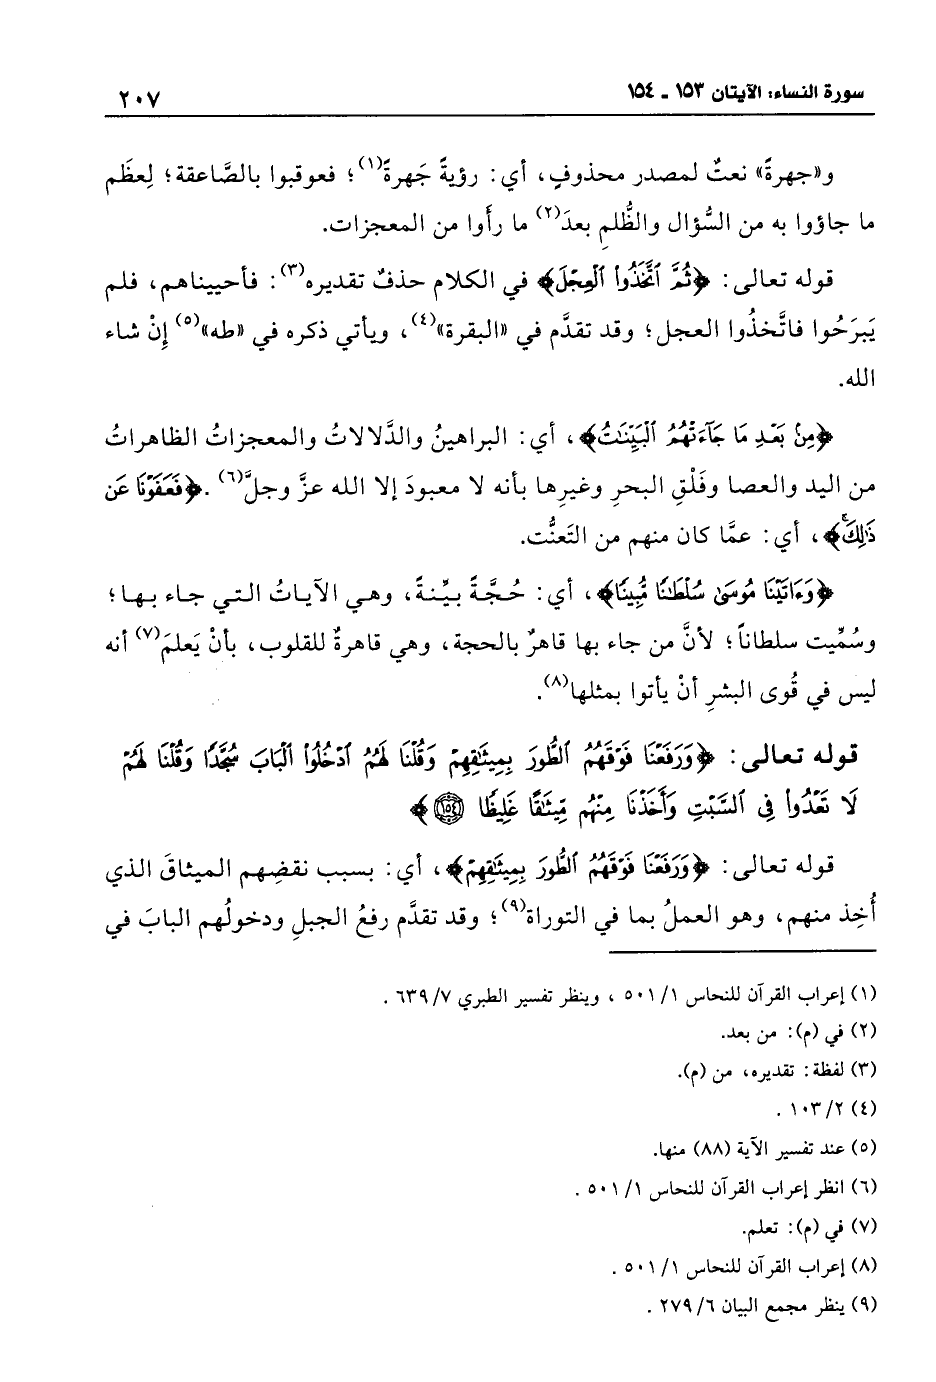 سورة النساء: الآيتان ١٥٣ ـ ١٥٤
٢٠٧
و«جهرةً» نعتٌ لمصدر محذوفٍ، أي: رؤيةً جَهرةً(١)؛ فعوقبوا بالصَّاعقة؛ لِعظَم
ما جاؤوا به من السُّؤال والظُّلمِ بعدَ(٢) ما رأَوا من المعجزات.
قوله تعالى: ﴿ثُمَّ ٱتَّخَذُواْ ٱلْعِجْلَ﴾ في الكلام حذفٌ تقديره(٣): فأحييناهم، فلم
يَبرَحُوا فاتَّخذُوا العجل؛ وقد تقدَّم في «البقرة»(٤)، ويأتي ذكره في «طه»(٥) إنْ شاء
الله.
﴿مِنۢ بَعْدِ مَا جَآءَتْهُمُ ٱلْبَيِّنَٰتُ﴾، أي: البراهينُ والدَّلالاتُ والمعجزاتُ الظاهراتُ
من اليد والعصا وفَلْقِ البحرِ وغيرِها بأنه لا معبودَ إلا الله عزَّ وجلَّ(٦). ﴿فَعَفَوْنَا عَن
ذَٰلِكَۚ﴾، أي: عمَّا كان منهم من التَعنُّت.
﴿وَءَاتَيْنَا مُوسَىٰ سُلْطَٰنًا مُّبِينًا﴾، أي: حُجَّةً بيِّنةً، وهي الآياتُ التي جاء بها؛
وسُمِّيت سلطاناً؛ لأنَّ من جاء بها قاهرٌ بالحجة، وهي قاهرةٌ للقلوب، بأنْ يَعلمَ(٧) أنه
ليس في قُوى البشرِ أنْ يأتوا بمثلها(٨).
قوله تعالى: ﴿وَرَفَعْنَا فَوْقَهُمُ ٱلطُّورَ بِمِيثَٰقِهِمْ وَقُلْنَا لَهُمُ ٱدْخُلُواْ ٱلْبَابَ سُجَّدًا وَقُلْنَا لَهُمْ
لَا تَعْدُواْ فِى ٱلسَّبْتِ وَأَخَذْنَا مِنْهُم مِّيثَٰقًا غَلِيظًا ١٥٤﴾
قوله تعالى: ﴿وَرَفَعْنَا فَوْقَهُمُ ٱلطُّورَ بِمِيثَٰقِهِمْ﴾، أي: بسبب نقضِهم الميثاقَ الذي
أُخِذ منهم، وهو العملُ بما في التوراة(٩)؛ وقد تقدَّم رفعُ الجبلِ ودخولُهم البابَ في
(١) إعراب القرآن للنحاس ١/ ٥٠١ ، وينظر تفسير الطبري ٧/ ٦٣٩ .
(٢) في (م): من بعد.
(٣) لفظة: تقديره، من (م).
(٤) ٢/ ١٠٣ .
(٥) عند تفسير الآية (٨٨) منها.
(٦) انظر إعراب القرآن للنحاس ١/ ٥٠١ .
(٧) في (م): تعلم.
(٨) إعراب القرآن للنحاس ١/ ٥٠١ .
(٩) ينظر مجمع البيان ٦/ ٢٧٩ .